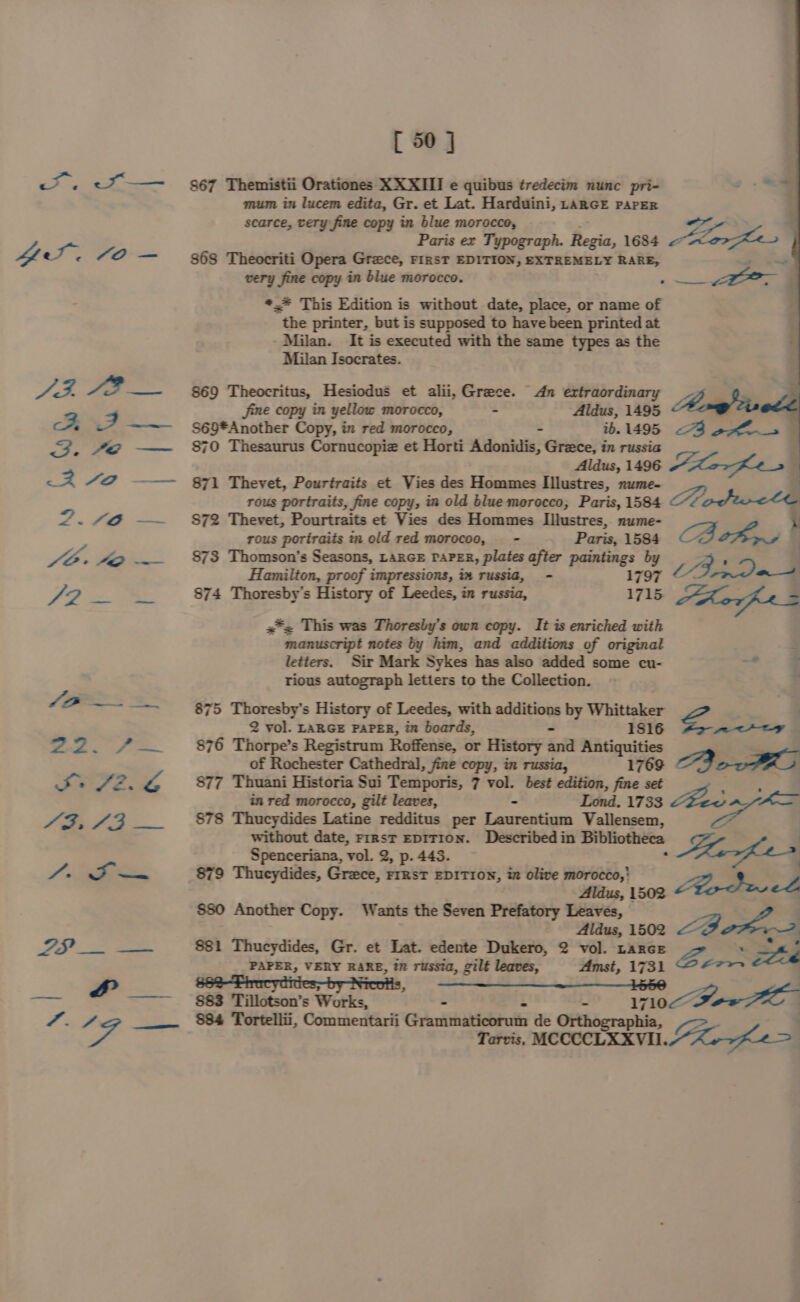 [ 50 ]
5. 5 — 867 Themistii Orationes XXXIII e quibus tredecim nunc pri-
mum in lucem edita, Gr. et Lat. Harduini, LARGE PAPER
scarce, very fine copy in blue morocco,
Paris ex Typograph. Regia, 1684 Thorpe
10 — 868 Theocriti Opera Græce, FIRST EDITION, EXTREMELY RARE,
very fine copy in blue morocco. — do —
*⁎* This Edition is without date, place, or name of
the printer, but is supposed to have been printed at
Milan. It is executed with the same types as the
Milan Isocrates.
13. 13 — 869 Theocritus, Hesiodus et alii, Græce. An extraordinary
fine copy in yellow morocco, - Aldus, 1495
3. 3 — 869*Another Copy, in red morocco, - ib. 1495 Bohn
3. 10 — 870 Thesaurus Cornucopiæ et Horti Adonidis, Græce, in russia
Aldus, 1496 Thorpe
2 10 — 871 Thevet, Pourtraits et Vies des Hommes Illustres, nume-
rous portraits, fine copy, in old blue morocco, Paris, 1584 Rodwell
2. 10 — 872 Thevet, Pourtraits et Vies des Hommes Illustres, nume-
rous portraits in old red morocoo, - Paris, 1584 Bohn
16. 10 — 873 Thomson's Seasons, LARGE PAPER, plates after paintings by
Hamilton, proof impressions, in russia, - 1797
12 — — 874 Thoresby's History of Leedes, in russia, 1715 Thorpe
⁎*⁎ This was Thoresby's own copy. It is enriched with
manuscript notes by him, and additions of original
letters. Sir Mark Sykes has also added some cu-
rious autograph letters to the Collection.
10 — — 875 Thoresby's History of Leedes, with additions by Whittaker
2 vol. LARGE PAPER, in boards, - 1816
22. 1 — 876 Thorpe's Registrum Roffense, or History and Antiquities
of Rochester Cathedral, fine copy, in russia, 1769 Booth
5. 12. 6 877 Thuani Historia Sui Temporis, 7 vol. best edition, fine set
in red morocco, gilt leaves, - Lond. 1733
13. 13 — 878 Thucydides Latine redditus per Laurentium Vallensem,
without date, FIRST EDITION. Described in Bibliotheca
Spenceriana, vol. 2, p. 443. Thorpe
1. 5 — 879 Thucydides, Græce, FIRST EDITION, in olive morocco,
Aldus, 1502 Rodwell
880 Another Copy. Wants the Seven Prefatory Leaves,
Aldus, 1502 Bohn
28 — — 881 Thucydides, Gr. et Lat. edente Dukero, 2 vol. LARGE
PAPER, VERY RARE, in russia, gilt leaves, Amst, 1731
882 Thucydides, by Nicolls, 1550
— 883 Tillotson's Works, - - - 1710 Booth
1. 19 — 884 Tortellii, Commentarii Grammaticorum de Orthographia,
Tarvis, MCCCCLXXVII. Thorpe